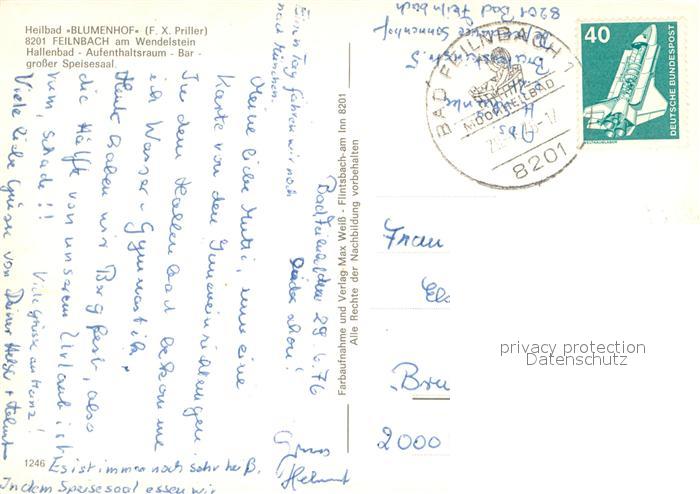 Heilbad »BLUMENHOF« (F. X. Priller)
8201 FEILNBACH am Wendelstein
Hallenbad - Aufenthaltsraum - Bar -
großer Speisesaal.
Bad Feilnbach, den 29.6.76
Meine liebe Mutti, nun eine
Karte von den Inneneinrichtungen.
In dem Hallenbad bekomme
ich Wasser-Gymnastik.
Heute haben wir Bergfest, also
die Hälfte von unserem Urlaub ist
rum, schade!!
Viele Grüsse an Heinz!
Viele liebe Grüsse von Deiner Heidi + Helmut
Es ist immer noch sehr heiß.
In dem Speisesaal essen wir
Einen Tag fahren wir noch
nach München.
Gruss
Helmut
1246
Farbaufnahme und Verlag: Max Weiß - Flintsbach am Inn 8201
Alle Rechte der Nachbildung vorbehalten
Abs.
8201 Bad Feilnbach
BAD FEILNBACH
MOORHEILBAD
8201
40
DEUTSCHE BUNDESPOST
Frau
2000
privacy protection
Datenschutz